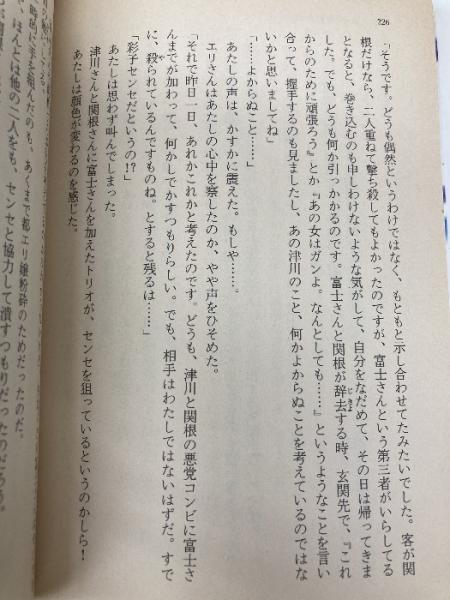 226
「そうです。どうも偶然というわけではなく、もともと示し合わせてたみたいでした。客が関
根だけなら、二人重ねて撃ち殺してもよかったのですが、富士さんという第三者がいらしてる
となると、巻き込むのも申しわけないような気がして、自分をなだめて、その日は帰ってきま
した。でも、どうも何か引っかかるのです。富士さんと関根が辞去する時、玄関先で、『これ
からのために頑張ろう』とか『あの女はガンよ。なんとしても……』というようなことを言い
合って、握手するのも見ましたし、あの津川のこと、何かよからぬことを考えているのではな
いかと思いましてね」
「……よからぬこと……」
あたしの声は、かすかに震えた。もしや……。
エリさんはあたしの心中を察したのか、やや声をひそめた。
「それで昨日一日、あれかこれかと考えたのです。どうも、津川と関根の悪党コンビに富士さ
んまでが加わって、何かしでかすつもりらしい。でも、相手はわたしではないはずだ。すで
に、殺られているんですものね。とすると残るは……」
「彩子センセだというの!?」
あたしは思わず叫んでしまった。
津川さんと関根さんに富士さんを加えたトリオが、センセを狙っているというのかしら!
あたしは顔色が変わるのを感じた。
時的に手を組んだのも、あくまで都エリ嬢粉砕のためだったのだ。
ほんとは他の二人をも、センセと協力して潰すつもりだったのだろう。